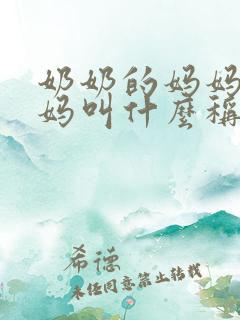 奶奶的妈妈
妈叫什麼稱
希德
未经同意禁止转载